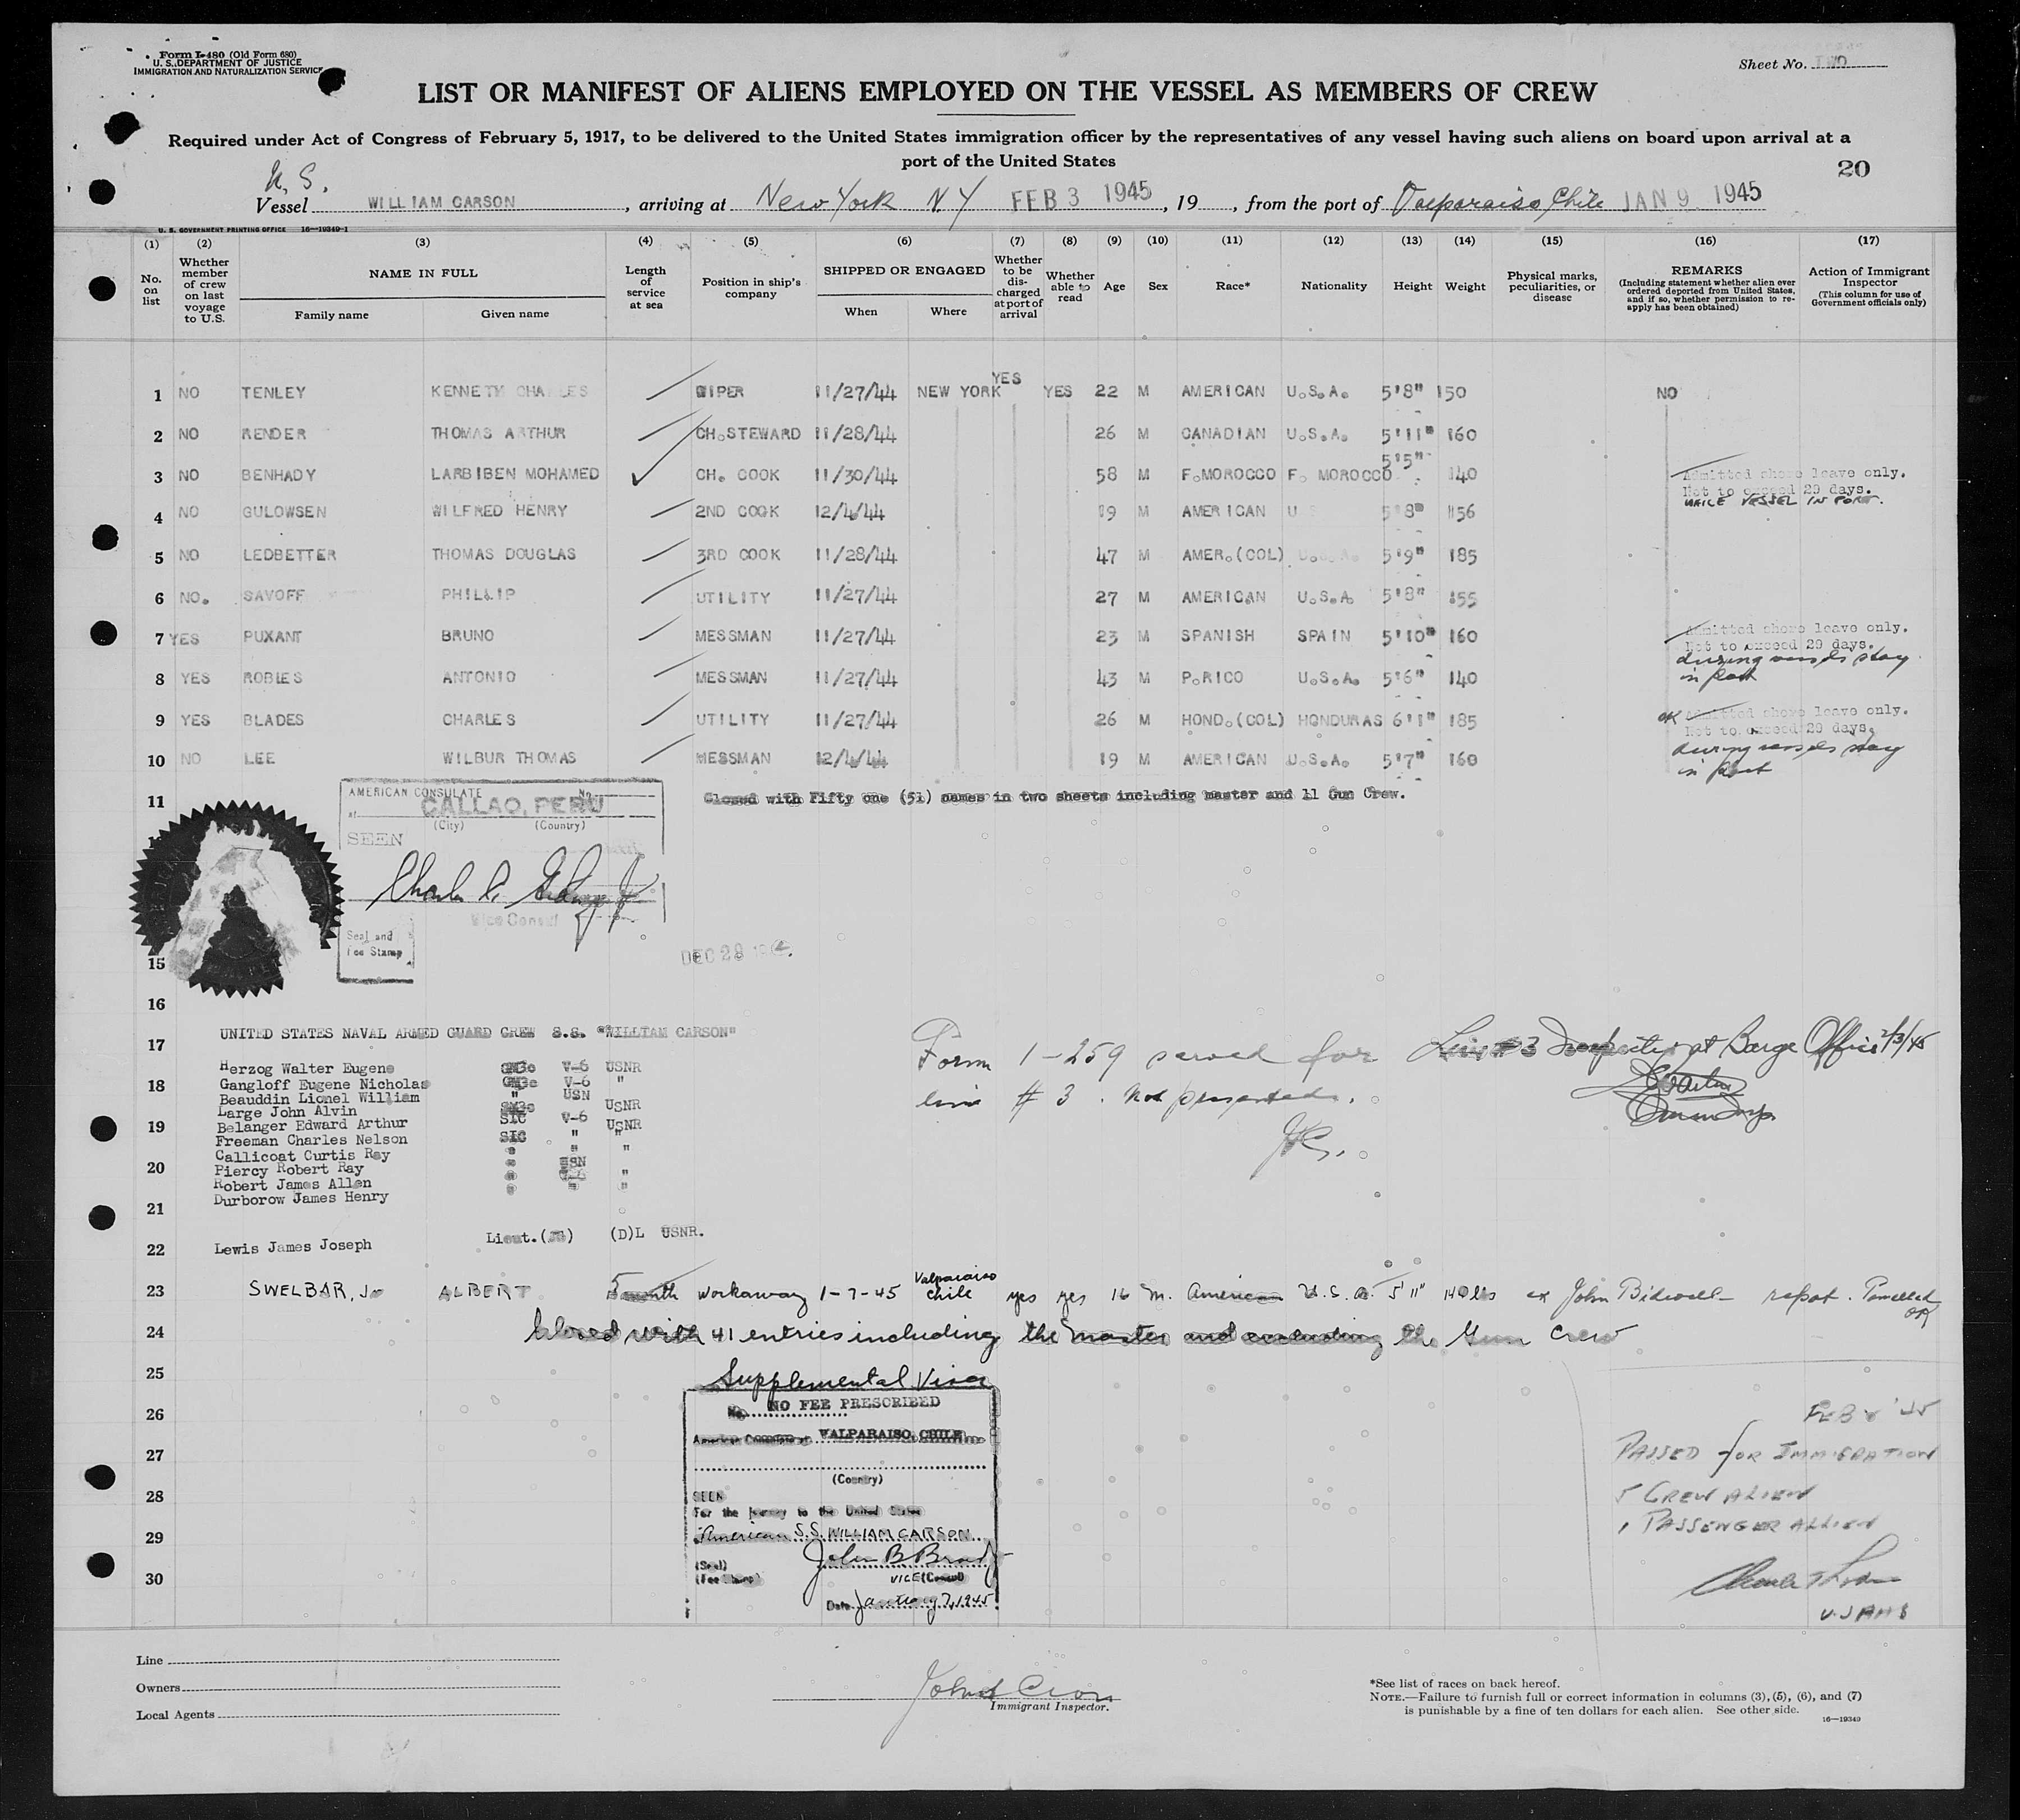 Form I-480 (Old Form 680)
U. S. DEPARTMENT OF JUSTICE
IMMIGRATION AND NATURALIZATION SERVICE
Sheet No. TWO
LIST OR MANIFEST OF ALIENS EMPLOYED ON THE VESSEL AS MEMBERS OF CREW
Required under Act of Congress of February 5, 1917, to be delivered to the United States immigration officer by the representatives of any vessel having such aliens on board upon arrival at a
port of the United States
20
Vessel WILLIAM CARSON, arriving at New York N.Y FEB 3 1945, 19, from the port of Valparaiso, Chile JAN 9 1945
U. S. GOVERNMENT PRINTING OFFICE 16—19349-1
(1) (2) (3) (4) (5) (6) (7) (8) (9) (10) (11) (12) (13) (14) (15) (16) (17)
No. on list
Whether member of crew on last voyage to U.S.
NAME IN FULL
Family name Given name
Length of service at sea
Position in ship's company
SHIPPED OR ENGAGED
When Where
Whether to be discharged at port of arrival
Whether able to read
Age Sex Race* Nationality Height Weight
Physical marks, peculiarities, or disease
REMARKS
(Including statement whether alien ever ordered deported from United States, and if so, whether permission to reapply has been obtained)
Action of Immigrant Inspector
(This column for use of Government officials only)
1 NO TENLEY KENNETH CHARLES WIPER 11/27/44 NEW YORK YES YES 22 M AMERICAN U.S.A. 5'8" 150 NO
2 NO RENDER THOMAS ARTHUR CH.STEWARD 11/28/44 26 M CANADIAN U.S.A. 5'11" 160
3 NO BENHADY LARBIBEN MOHAMED CH. COOK 11/30/44 58 M F.MOROCCO F. MOROCCO 5'5" 140
Admitted shore leave only.
Not to exceed 29 days.
WHILE VESSEL IN PORT.
4 NO GULOWSEN WILFRED HENRY 2ND COOK 12/4/44 19 M AMERICAN U S 5'8" 156
5 NO LEDBETTER THOMAS DOUGLAS 3RD COOK 11/28/44 47 M AMER.(COL) U.S.A. 5'9" 185
6 NO. SAVOFF PHILLIP UTILITY 11/27/44 27 M AMERICAN U.S.A. 5'8" 155
7 YES PUXANT BRUNO MESSMAN 11/27/44 23 M SPANISH SPAIN 5'10" 160
Admitted shore leave only.
Not to exceed 29 days.
during vessels stay
in port
8 YES ROBLES ANTONIO MESSMAN 11/27/44 43 M P.RICO U.S.A. 5'6" 140
9 YES BLADES CHARLES UTILITY 11/27/44 26 M HOND.(COL) HONDURAS 6'1" 185
OK Admitted shore leave only.
Not to exceed 29 days.
during vessels stay
in port
10 NO LEE WILBUR THOMAS MESSMAN 12/4/44 19 M AMERICAN U.S.A. 5'7" 160
11 Closed with Fifty one (51) names in two sheets including master and 11 Gun Crew.
AMERICAN CONSULATE No.
at CALLAO, PERU
(City) (Country)
SEEN
Vice Consul
Seal and
Fee Stamp
DEC 28
15
16
17 UNITED STATES NAVAL ARMED GUARD CREW S.S. "WILLIAM CARSON"
Herzog Walter Eugene GM3c V-6 USNR
18 Gangloff Eugene Nicholas GM3c V-6 "
Beauddin Lionel William " USN
Large John Alvin SM3c USNR
19 Belanger Edward Arthur S1C V-6 USNR
Freeman Charles Nelson S1C " "
Callicoat Curtis Ray " " "
20 Piercy Robert Ray " USN
Robert James Allen " V-6 "
Durborow James Henry " " "
21
22 Lewis James Joseph Lieut.(JG) (D)L USNR.
Form 1-259 served for
line #3. Not presented.
Line #3 Inspected at Barge Office 2/3/45
23 SWELBAR, Jr ALBERT workaway 1-7-45 Valparaiso Chile yes yes 16 M. American U.S.A. 5'11" 140 lbs ex John Bidwell repat.
24 Closed with 41 entries including the master and excluding the Gun Crew
25 Supplemental Visa
26 No. NO FEE PRESCRIBED
American Consulate at VALPARAISO, CHILE
27
(Country)
28 SEEN
For the journey to the United States
29 American S.S. WILLIAM CARSON
John B. Brady
(Seal)
30 (Fee Stamp) VICE (Consul)
Date January 7, 1945
FEB '45
PASSED FOR IMMIGRATION
5 CREW ALIEN
1 PASSENGER ALLIEN
Line
Owners
Local Agents
Immigrant Inspector.
*See list of races on back hereof.
NOTE.—Failure to furnish full or correct information in columns (3), (5), (6), and (7)
is punishable by a fine of ten dollars for each alien. See other side.
16—19349